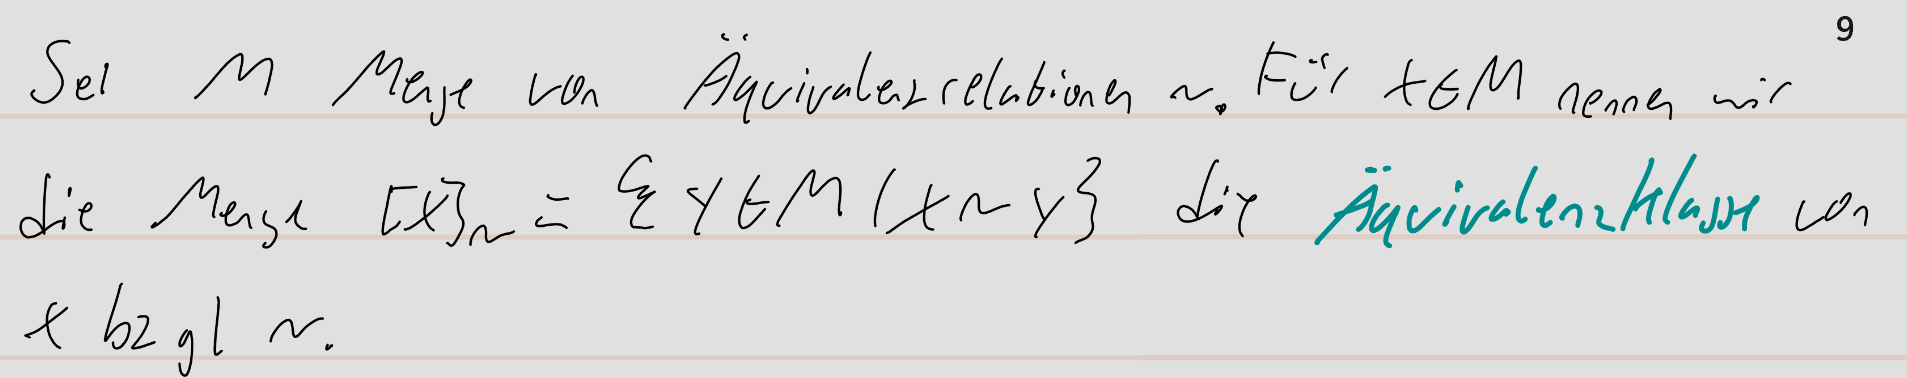 9
Sei M Menge von Äquivalenzrelationen ~. Für x∈M nennen wir
die Menge [x]~ = {y∈M | x~y} die Äquivalenzklasse von
x bzgl ~.